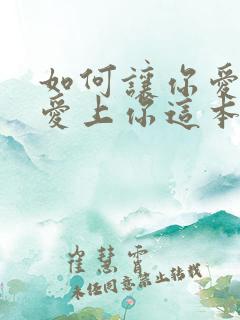 如何讓你愛
愛上你這本
崔慧霄
未經同意禁止转载